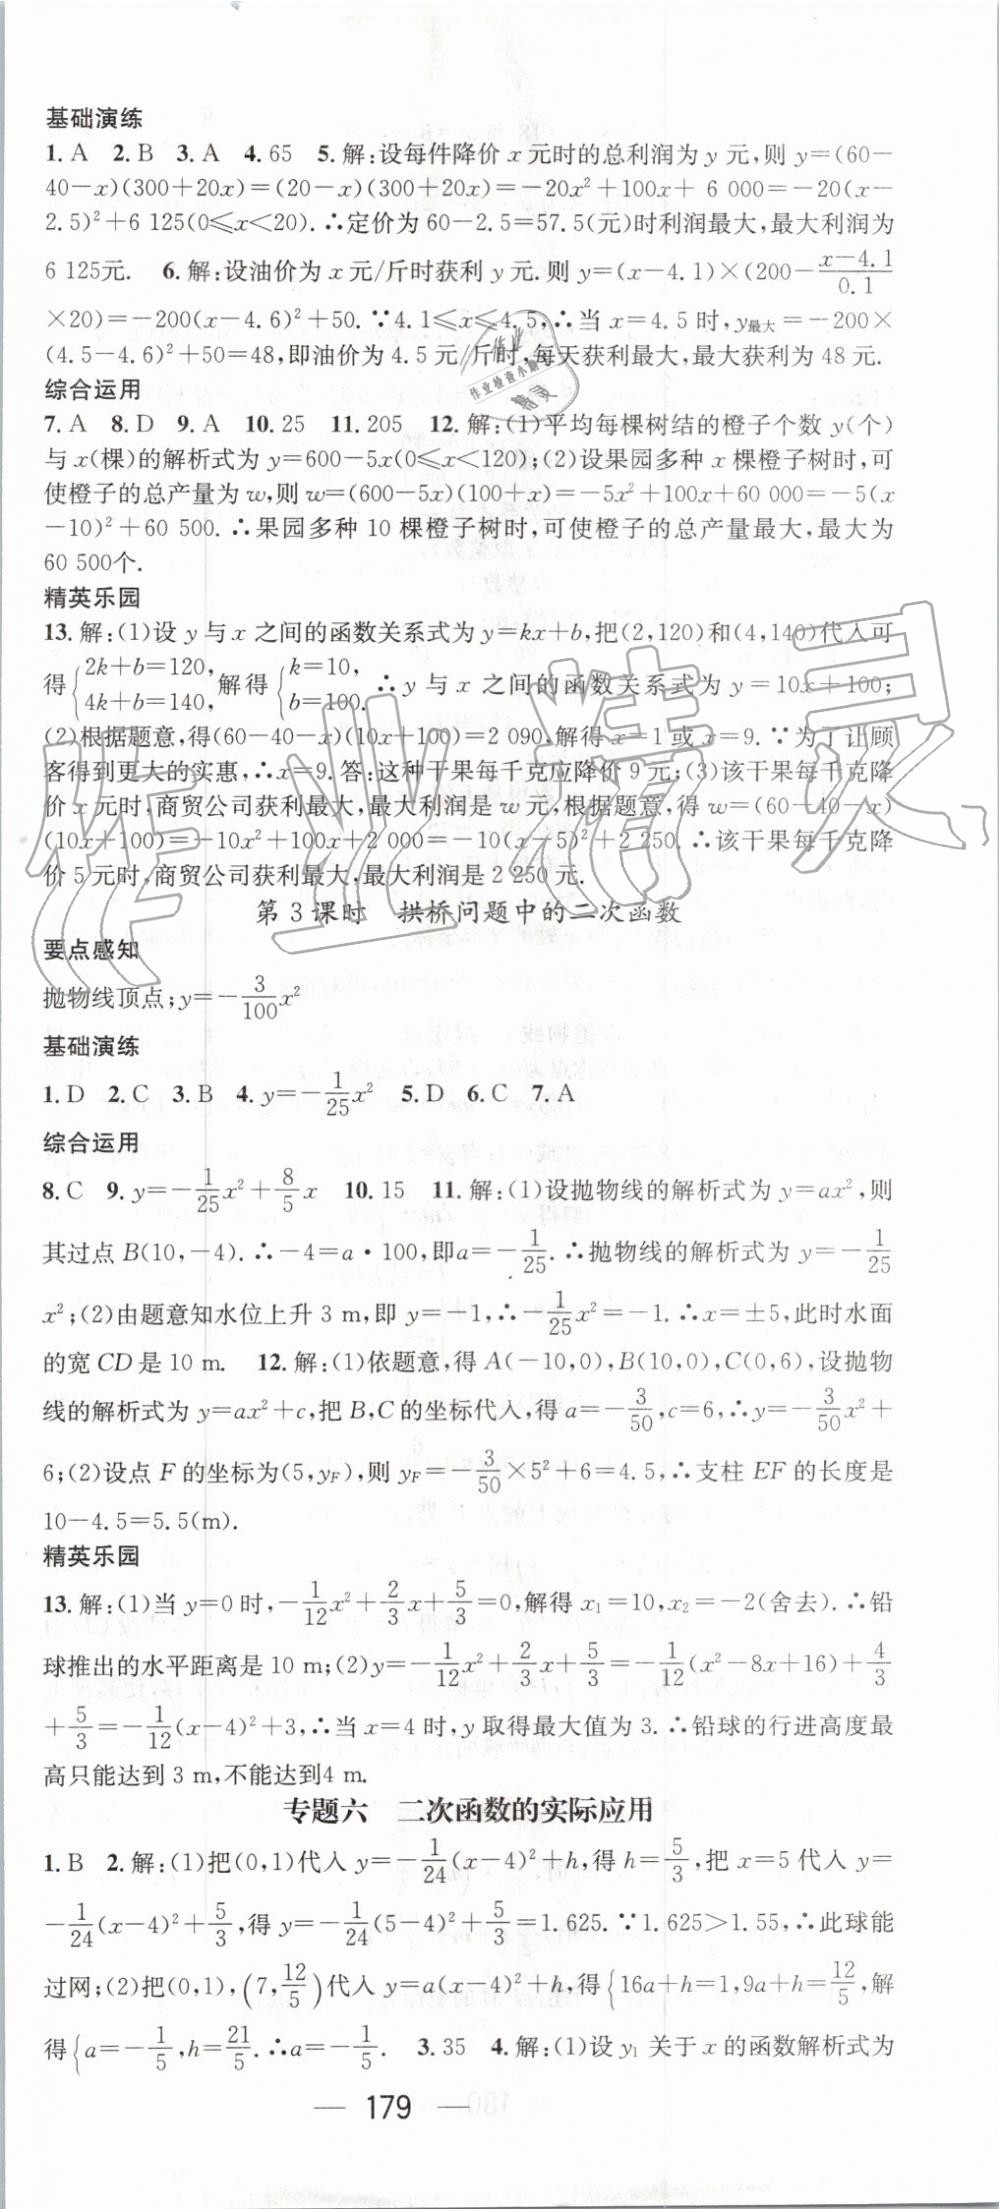 基础演练
1. A 2. B 3. A 4. 65 5. 解:设每件降价 x 元时的总利润为 y 元,则 y=(60-
40-x)(300+20x)=(20-x)(300+20x)=-20x²+100x+ 6 000=-20(x-
2.5)²+6 125(0≤x<20). ∴定价为 60-2.5=57.5(元)时利润最大,最大利润为
6 125元. 6. 解:设油价为 x 元/斤时获利 y 元. 则 y=(x-4.1)×(200-(x-4.1)/0.1
×20)=-200(x-4.6)²+50. ∵4.1≤x≤4.5,∴当 x=4.5 时,y最大=-200×
(4.5-4.6)²+50=48,即油价为 4.5 元/斤时,每天获利最大,最大获利为 48 元.
综合运用
7. A 8. D 9. A 10. 25 11. 205 12. 解:(1)平均每棵树结的橙子个数 y(个)
与 x(棵)的解析式为 y=600-5x(0≤x<120);(2)设果园多种 x 棵橙子树时,可
使橙子的总产量为 w,则 w=(600-5x)(100+x)=-5x²+100x+60 000=-5(x
-10)²+60 500. ∴果园多种 10 棵橙子树时,可使橙子的总产量最大,最大为
60 500个.
精英乐园
13. 解:(1)设 y 与 x 之间的函数关系式为 y=kx+b,把(2,120)和(4,140)代入可
得{2k+b=120, 4k+b=140, 解得{k=10, b=100. ∴y 与 x 之间的函数关系式为 y=10x+100;
(2)根据题意,得(60-40-x)(10x+100)=2 090,解得 x=1 或 x=9. ∵为了让顾
客得到更大的实惠,∴x=9. 答:这种干果每千克应降价 9 元;(3)该干果每千克降
价 x 元时,商贸公司获利最大,最大利润是 w 元,根据题意,得 w=(60-40-x)
(10x+100)=-10x²+100x+2 000=-10(x-5)²+2 250. ∴该干果每千克降
价 5 元时,商贸公司获利最大,最大利润是 2 250 元.
第 3 课时 拱桥问题中的二次函数
要点感知
抛物线顶点;y=-3/100x²
基础演练
1. D 2. C 3. B 4. y=-1/25x² 5. D 6. C 7. A
综合运用
8. C 9. y=-1/25x²+8/5x 10. 15 11. 解:(1)设抛物线的解析式为 y=ax²,则
其过点 B(10,-4). ∴-4=a·100,即a=-1/25. ∴抛物线的解析式为 y=-1/25
x²;(2)由题意知水位上升 3 m,即 y=-1,∴-1/25x²=-1. ∴x=±5,此时水面
的宽 CD 是 10 m. 12. 解:(1)依题意,得 A(-10,0),B(10,0),C(0,6),设抛物
线的解析式为 y=ax²+c,把 B,C 的坐标代入,得 a=-3/50,c=6,∴y=-3/50x²+
6;(2)设点 F 的坐标为(5,yF),则 yF=-3/50×5²+6=4.5,∴支柱 EF 的长度是
10-4.5=5.5(m).
精英乐园
13. 解:(1)当 y=0 时,-1/12x²+2/3x+5/3=0,解得 x₁=10,x₂=-2(舍去). ∴铅
球推出的水平距离是 10 m;(2)y=-1/12x²+2/3x+5/3=-1/12(x²-8x+16)+4/3
+5/3=-1/12(x-4)²+3,∴当 x=4 时,y 取得最大值为 3. ∴铅球的行进高度最
高只能达到 3 m,不能达到4 m.
专题六 二次函数的实际应用
1. B 2. 解:(1)把(0,1)代入 y=-1/24(x-4)²+h,得 h=5/3,把 x=5 代入 y=
-1/24(x-4)²+5/3,得 y=-1/24(5-4)²+5/3=1.625. ∵1.625>1.55,∴此球能
过网;(2)把(0,1),(7,12/5)代入 y=a(x-4)²+h,得{16a+h=1,9a+h=12/5,解
得{a=-1/5,h=21/5. ∴a=-1/5. 3. 35 4. 解:(1)设 y₁ 关于 x 的函数解析式为
— 179 —
作业精灵
作业
作业检查小助手
精灵